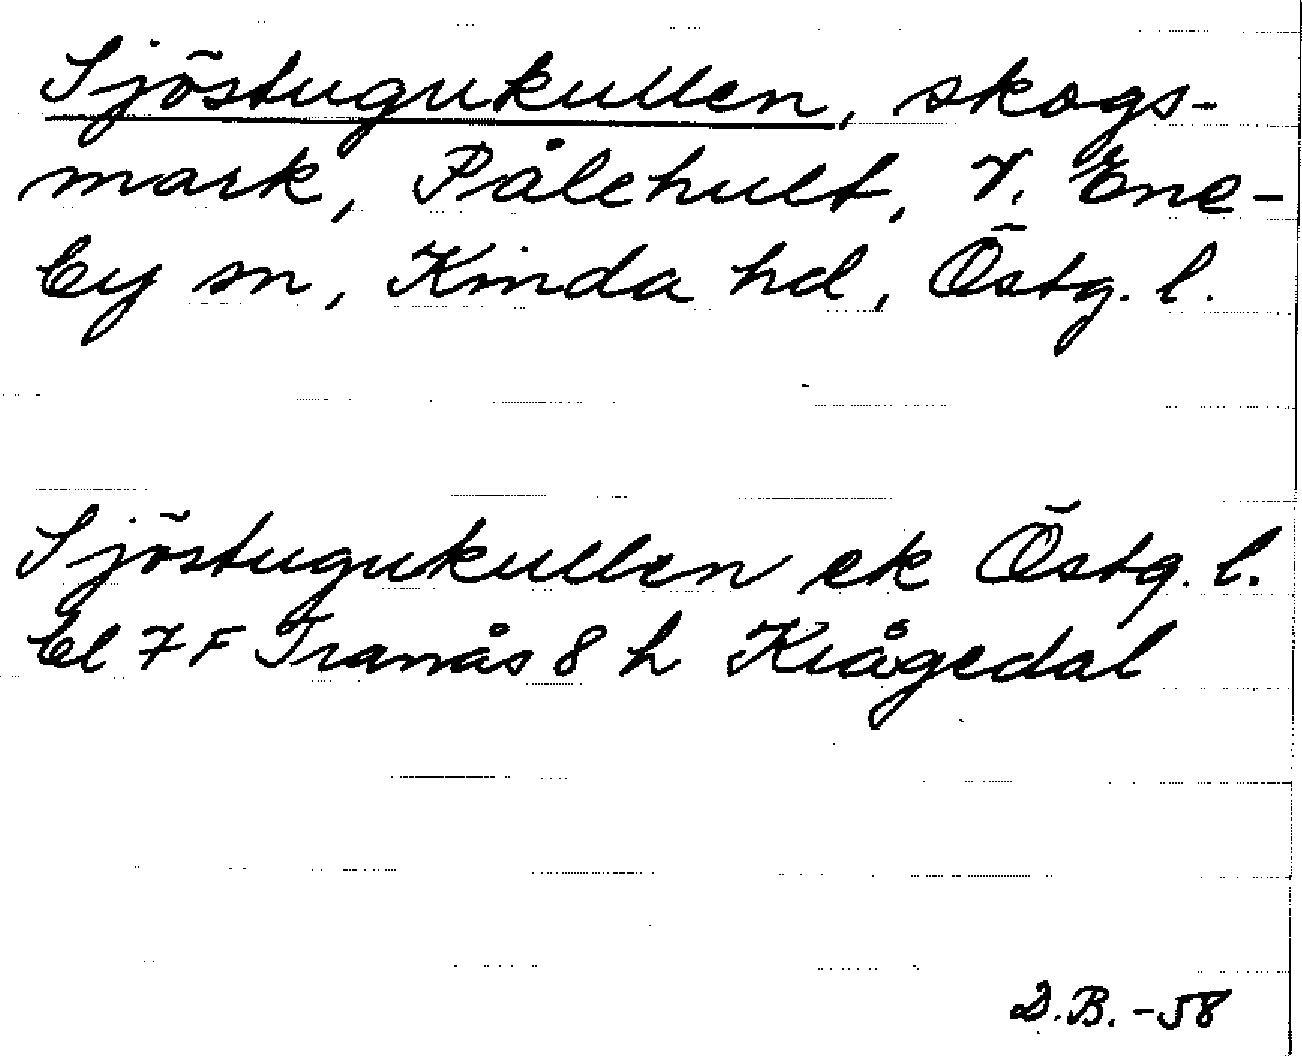 Sjöstugukullen, skogs-
mark, Pålehult, V. Ene-
by sn, Kinda hd, Östg. l.
Sjöstugukullen ek Östg. l.
bl 7F Tranås 8 h Krågedal
D.B. -58